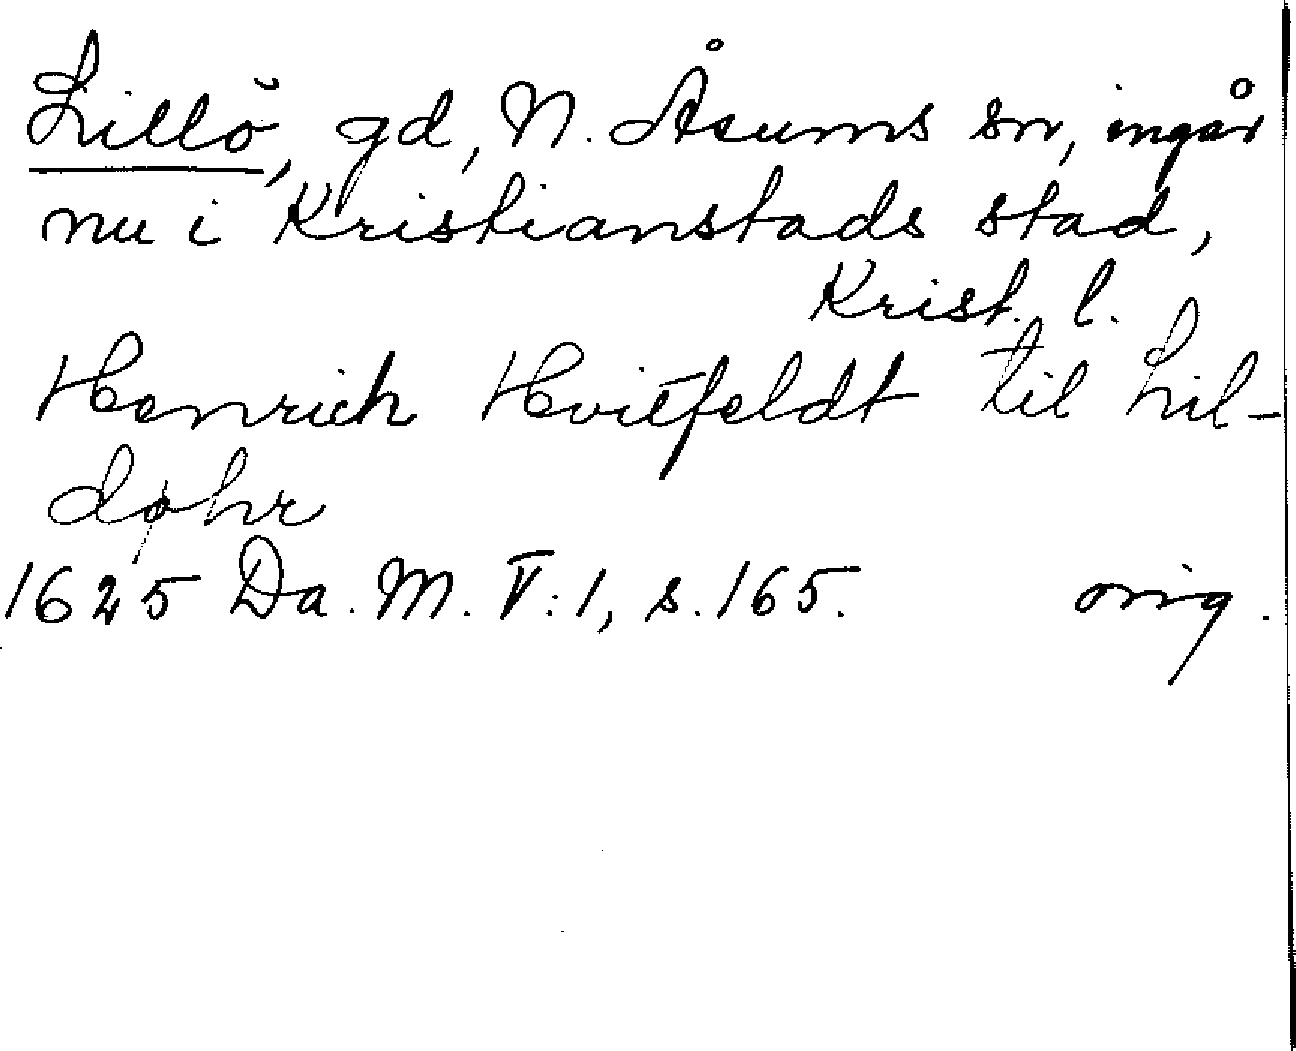 Lillö, gd, N. Åsums sn, ingår
nu i Kristianstads stad,
Krist. l.
Henrich Hvitfeldt til Lil-
døhr
1625 Da. M. V:1, s. 165. orig.